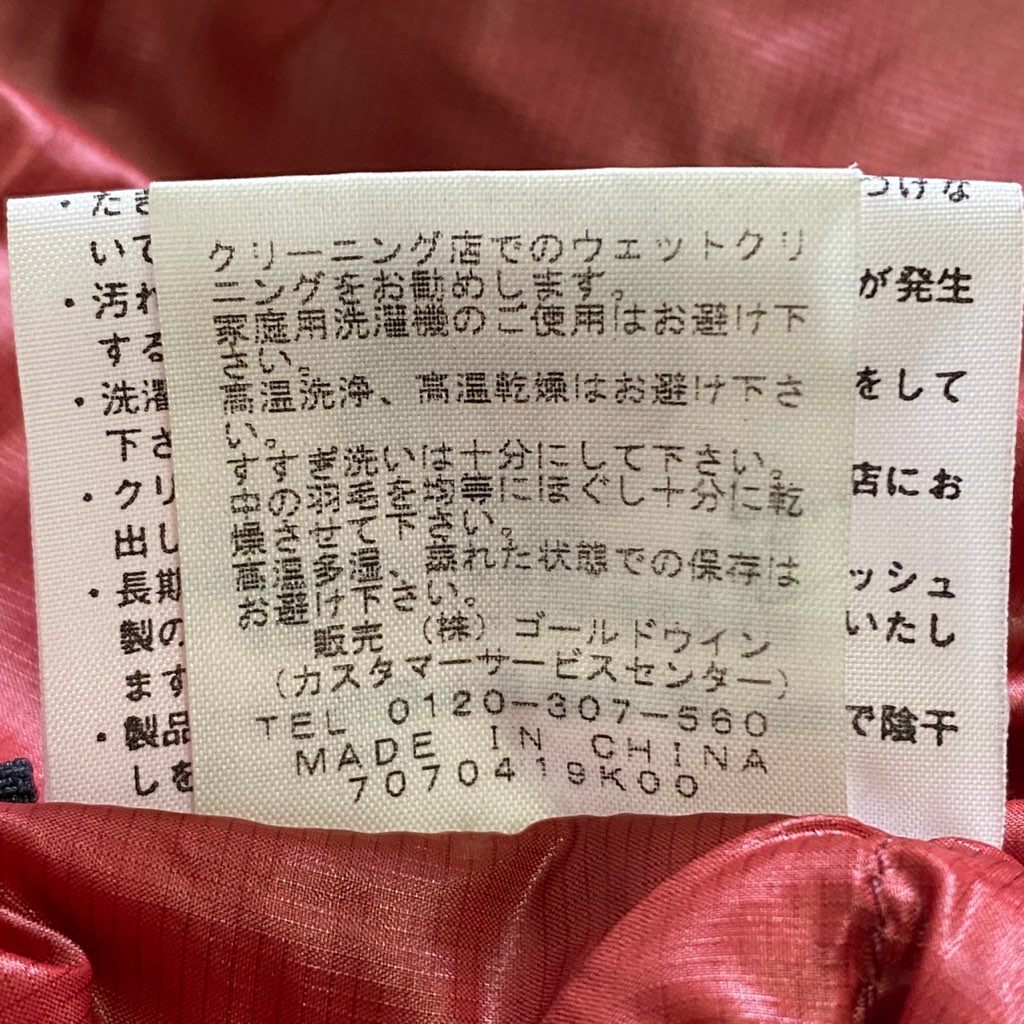 クリーニング店でのウェットクリ
ニングをお勧めします。
家庭用洗濯機のご使用はお避け下
さい。
高温洗浄、高温乾燥はお避け下さ
い。
すすぎ洗いは十分にして下さい。
中の羽毛を均等にほぐし十分に乾
燥させて下さい。
高温多湿、蒸れた状態での保存は
お避け下さい。
販売 (株) ゴールドウイン
(カスタマーサービスセンター)
TEL 0120-307-560
MADE IN CHINA
7070419K00
・たき
つけな
いて
・汚れ
が発生
する
・洗濯
をして
下さ
・クリ
店にお
出し
・長期
ッシュ
製の
いたし
ます
・製品
で陰干
しを